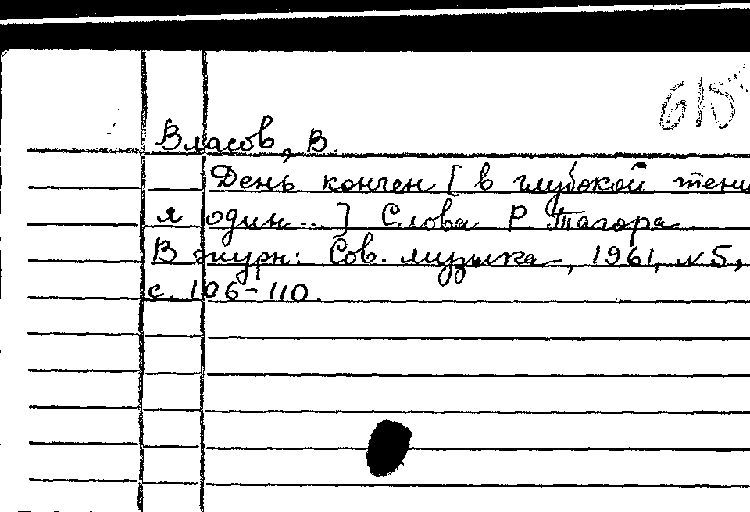 615
Власов, В.
День кончен [в глубокой тени
я один...] Слова Р. Тагора
В журн: Сов. музыка, 1961, №5,
с. 106-110.